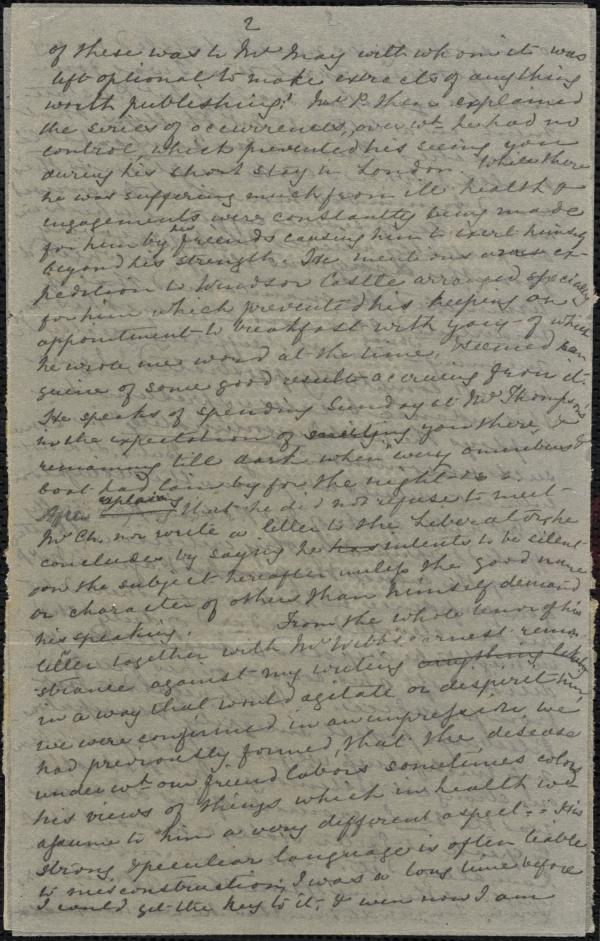 2
of these was to Mr May with whom it was
left optional to make extracts of anything
worth publishing! Mr P. then explained
the series of occurrences, over wh he had no
control which prevented his seeing you
during his short stay in London. While there
he was suffering much from ill health &
engagements were constantly being made
for him by his friends causing him to exert himself
beyond his strength. He mentions ex-
pedition to Windsor Castle arranged specially
for him which prevented his keeping an
appointment to breakfast with you, of which
he wrote me word at the time, seemed san
guine of some good results accruing from it.
He speaks of spending Sunday at Mr Thompson's
in the expectation of meeting you there, &
remaining till dark when every omnibus &
boat had lain by for the night
After explaining that he did not refuse to meet
Mr Ch. nor write a letter to the Liberator, he
concludes by saying he has intents to be silent
on the subject hereafter unless the good name
or character of others than himself demand
his speaking. From the whole tenor of his
letter together with Mr Webb's earnest remon
strance against my writing anything likely
in a way that would agitate or dispirit him,
we were confirmed in an impression we
had previously formed, that the disease
under wh our friend labors sometimes colors
his views of things which in health wd
assume to him a very different aspect. His
strong & peculiar language is often liable
to misconstruction, I was a long time before
I could get the key to it, & even now I am